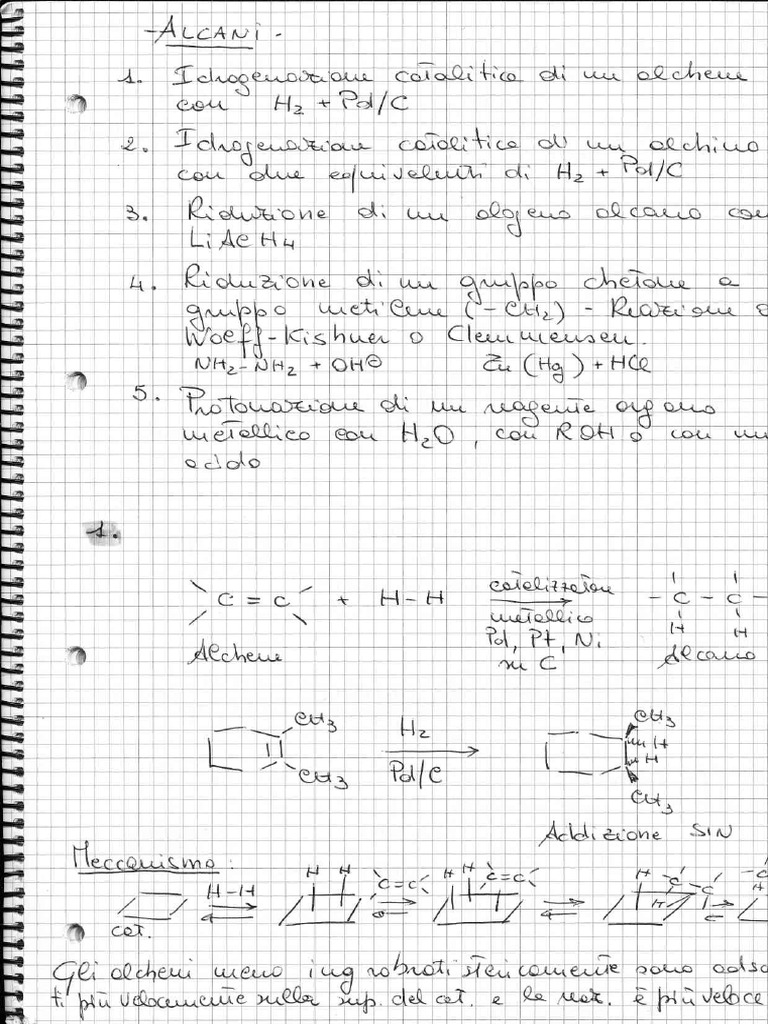 - ALCANI -
1. Idrogenazione catalitica di un alchene
con H2 + Pd/C
2. Idrogenazione catalitica di un alchino
con due equivalenti di H2 + Pd/C
3. Riduzione di un alogeno alcano con
LiAlH4
4. Riduzione di un gruppo chetone a
gruppo metilene (-CH2) - Reazione
Wolff-Kishner o Clemmensen.
NH2-NH2 + OH⊖ Zn(Hg) + HCl
5. Protonazione di un reagente organo
metallico con H2O, con ROH o con un
acido
1.
C = C + H-H catalizzatore - C - C -
metallico H H
Pd, Pt, Ni
su C
Alchene Alcano
CH3 H2 CH3
H
H
CH3 Pd/C CH3
Addizione SIN
Meccanismo:
H-H H H C=C H H C=C H C C
cat. H C
Gli alcheni meno ingrobrati stericamente sono
ti più velocemente sulla sup. del cat. e la reaz. è più veloce